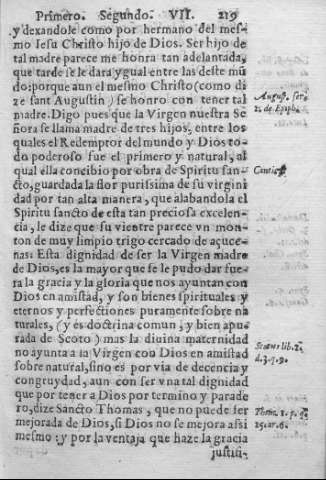 Primero. Segundo. VII. 219
y dexandole como por hermano del mes-
mo Iesu Christo hijo de Dios. Ser hijo de
tal madre parece me honra tan adelantada,
que tarde se le dara ygual entre las deste mũ
do: porque aun el mesmo Christo (como di
ze sant Augustin) se honro con tener tal
madre. Digo pues que la Virgen nuestra Se
ñora se llama madre de tres hijos, entre los
quales el Redemptor del mundo y Dios to-
do poderoso fue el primero y natural, al
qual ella concibio por obra de Spiritu san-
cto, guardada la flor purissima de su virgini
dad por tan alta manera, que alabandola el
Spiritu sancto de esta tan preciosa excelen-
cia, le dize que su vientre parece vn mon-
ton de muy limpio trigo cercado de açuce-
nas. Esta dignidad de ser la Virgen madre
de Dios, es la mayor que se le pudo dar fue-
ra la gracia y la gloria que nos ayuntan con
Dios en amistad, y son bienes spirituales y
eternos y perfectiones puramente sobre na
turales, (y es doctrina comun, y bien apu-
rada de Scoto) mas la diuina maternidad
no ayunta a la Virgen con Dios en amistad
sobre natural, sino es por via de decencia y
congruydad, aun con ser vna tal dignidad
que por tener a Dios por termino y parade
ro, dize Sancto Thomas, que no puede ser
mejorada de Dios, si Dios no se mejora assi
mesmo: y por la ventaja que haze la gracia
justifi-
August. ser.
2. de Epiph.
Cantic.
Scotus lib. 2.
d. 3. q. 9.
Thom. 1. p. q.
25. ar. 6.